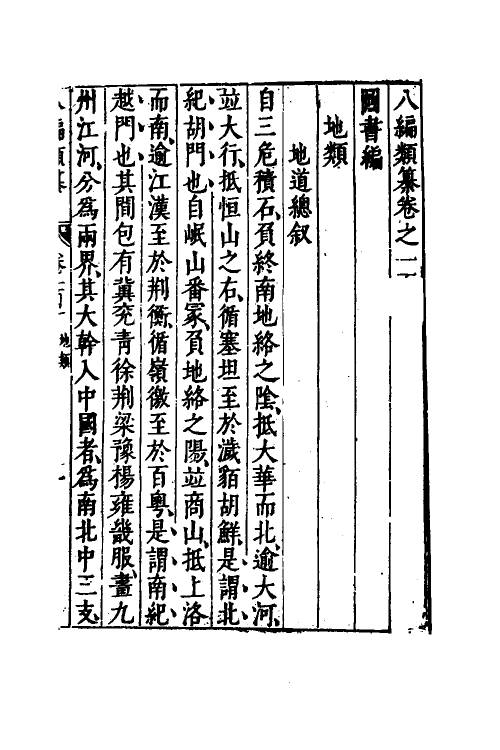 八編類纂卷之一二
圖書編
地類
地道總叙
自三危積石負終南地絡之陰抵大華而北逾大河
並大行抵恒山之右循塞坦至於濊貊胡鮮是謂北
紀胡門也自岷山番冢負地絡之陽並商山抵上洛
而南逾江漢至於荆衡循嶺徼至於百粤是謂南紀
越門也其間包有冀兖青徐荆梁豫楊雍畿服畫九
州江河分爲兩界其大幹入中國者爲南北中三支
八編類纂
地類
一